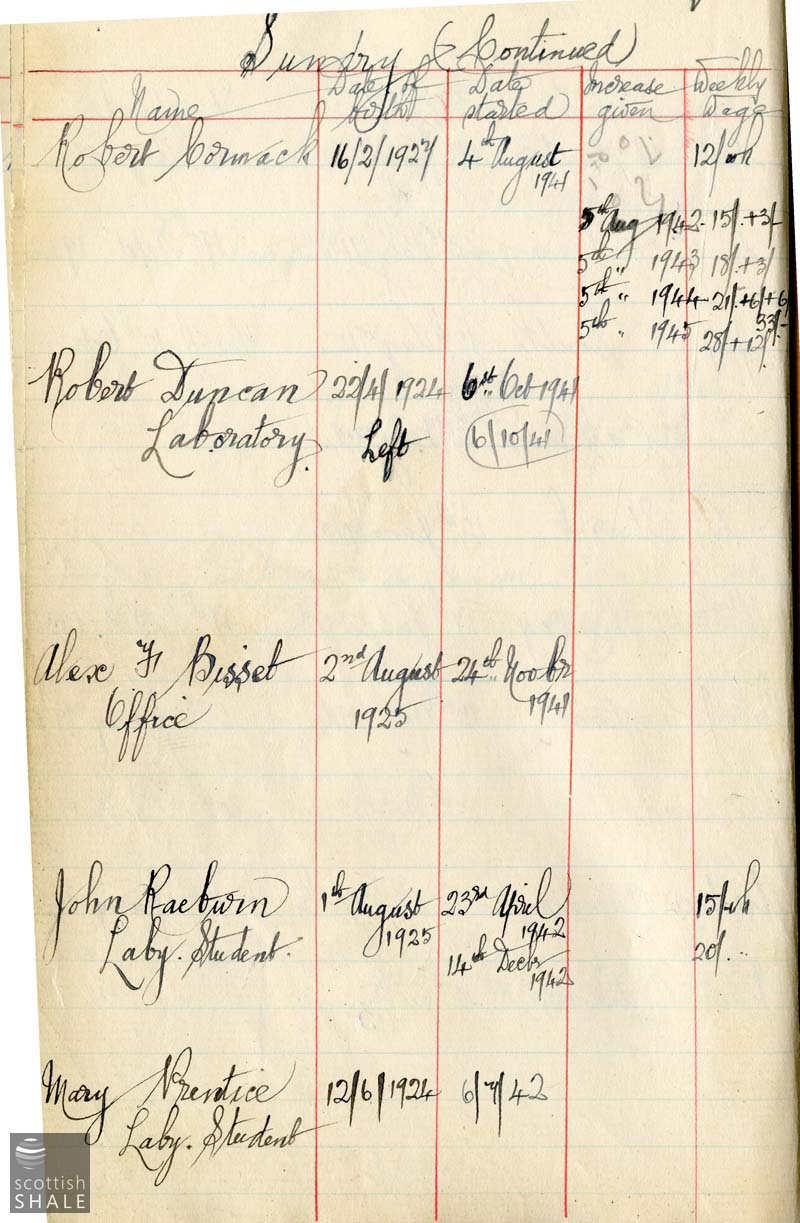 Sundry (Continued)
Name Date of birth Date started Increase given Weekly Wage
Robert Cormack 16/2/1927 4th August 1941 12/- wk
5th Aug 1942 15/- +3/-
5th " 1943 18/- +3/
5th " 1944 21/- +6/+6
33/-
5th " 1945 28/+12/-
Robert Duncan 22/4/1924 6th Oct 1941
Laboratory. Left 6/10/41
Alex F Bisset 2nd August 24th Novbr
Office 1925 1941
John Raeburn 1st August 23rd April 15/wk
1925 1942
Laby. Student. 14th Decbr 20/- "
1942
Mary Prentice 12/6/1924 6/7/42
Laby. Student
scottish
SHALE